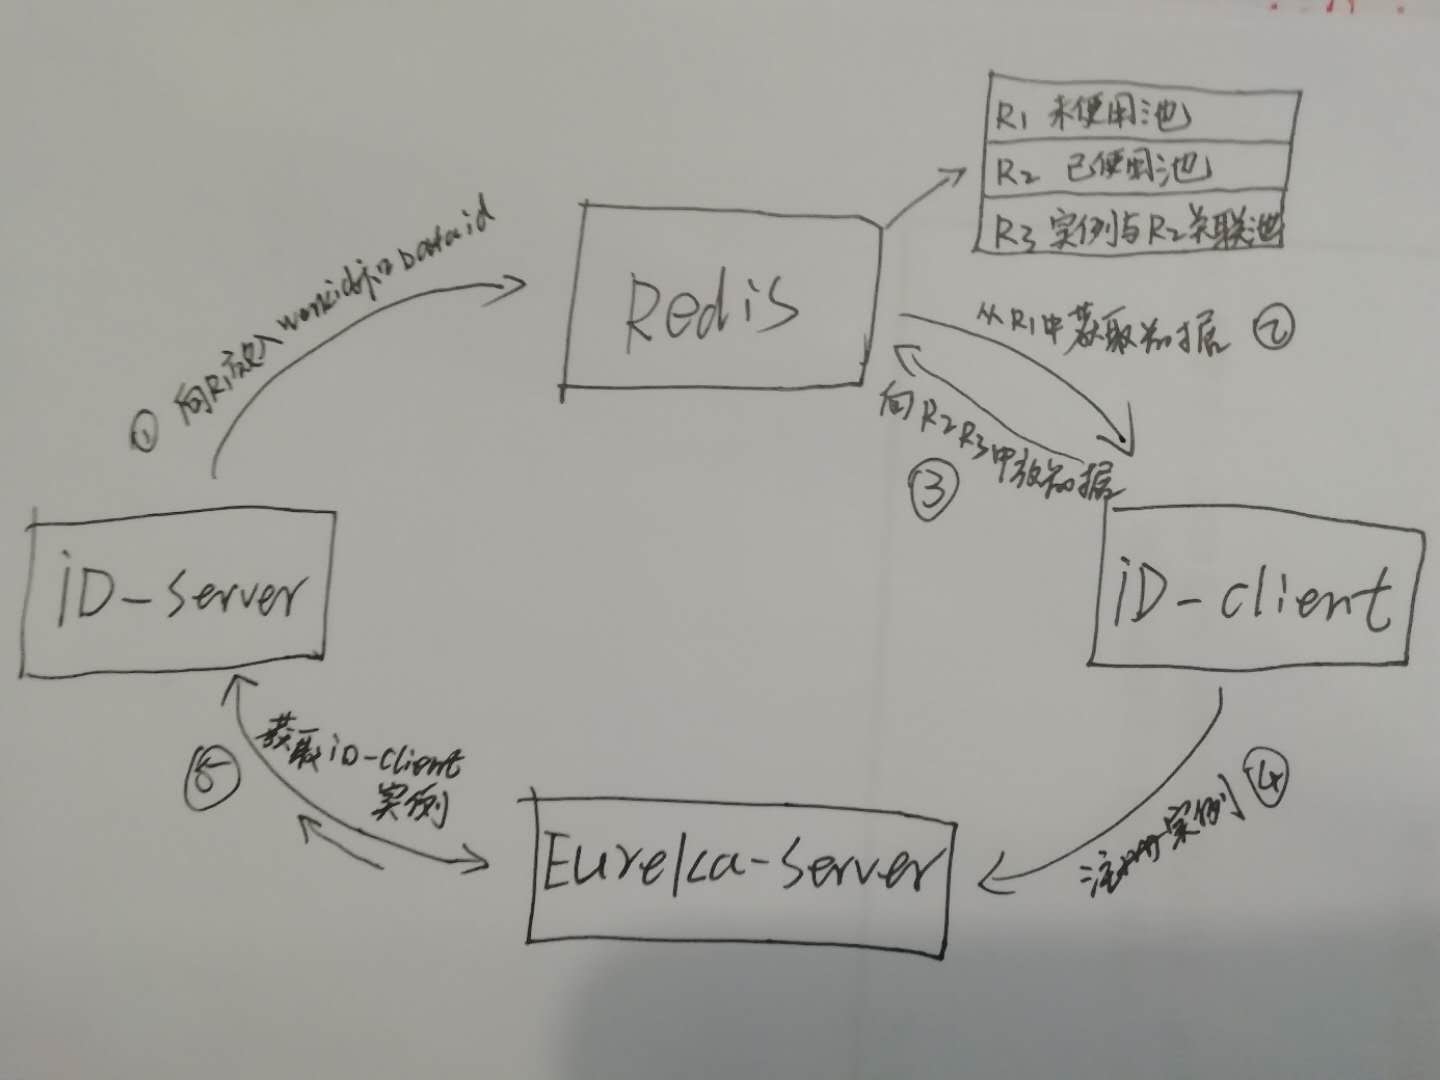 R1 未使用池
R2 已使用池
R3 实例与R2关联池
Redis
① 向R1放入workid和Dataid
从R1中获取数据 ②
向R2R3中放数据
③
iD-Server
iD-client
获取iD-Client
实例
⑤
注册实例 ④
Eureka-Server